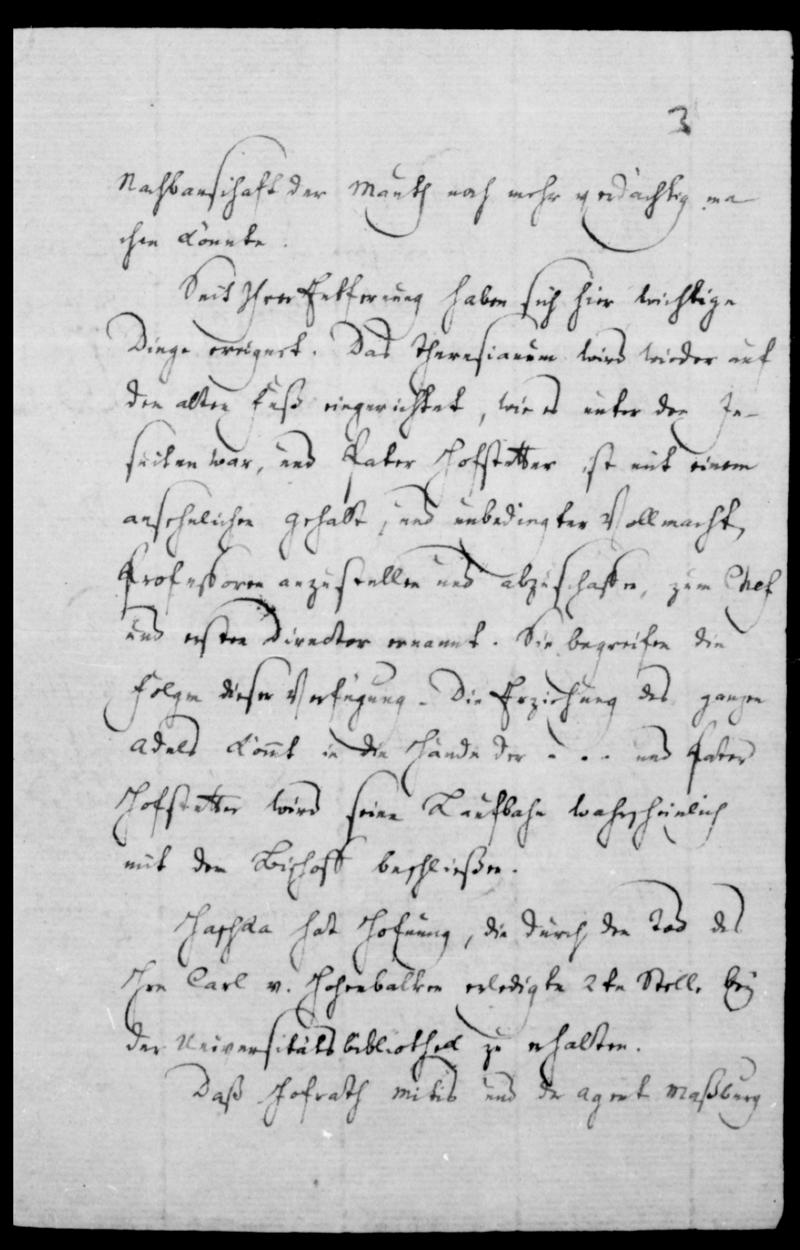 3
Nachbarschaft der Mauth noch mehr verdächtig ma-
chen könnte.
Seit Ihrer Entfernung haben sich hier wichtige
Dinge ereignet. Das Theresianum wird wieder auf
den alten Fuß eingerichtet, wie es unter den Je-
suiten war, und Pater Hofstetter ist mit einem
ansehnlichen Gehalt, und unbedingter Vollmacht,
Professoren anzustellen und abzuschaffen, zum Chef
und ersten Director ernannt. Sie begreifen die
Folgen dieser Verfügung. Die Erziehung des ganzen
Adels kömt in die Hände der . . . und Pater
Hofstetter wird seine Laufbahn wahrscheinlich
mit dem Bischoff beschließen.
Haschka hat Hofnung, die durch den Tod des
Hrn Carl v. Hohenbalken erledigte 2te Stelle bey
der Universitätsbibliothek zu erhalten.
Daß Hofrath Mitis und der Agent Maßburg